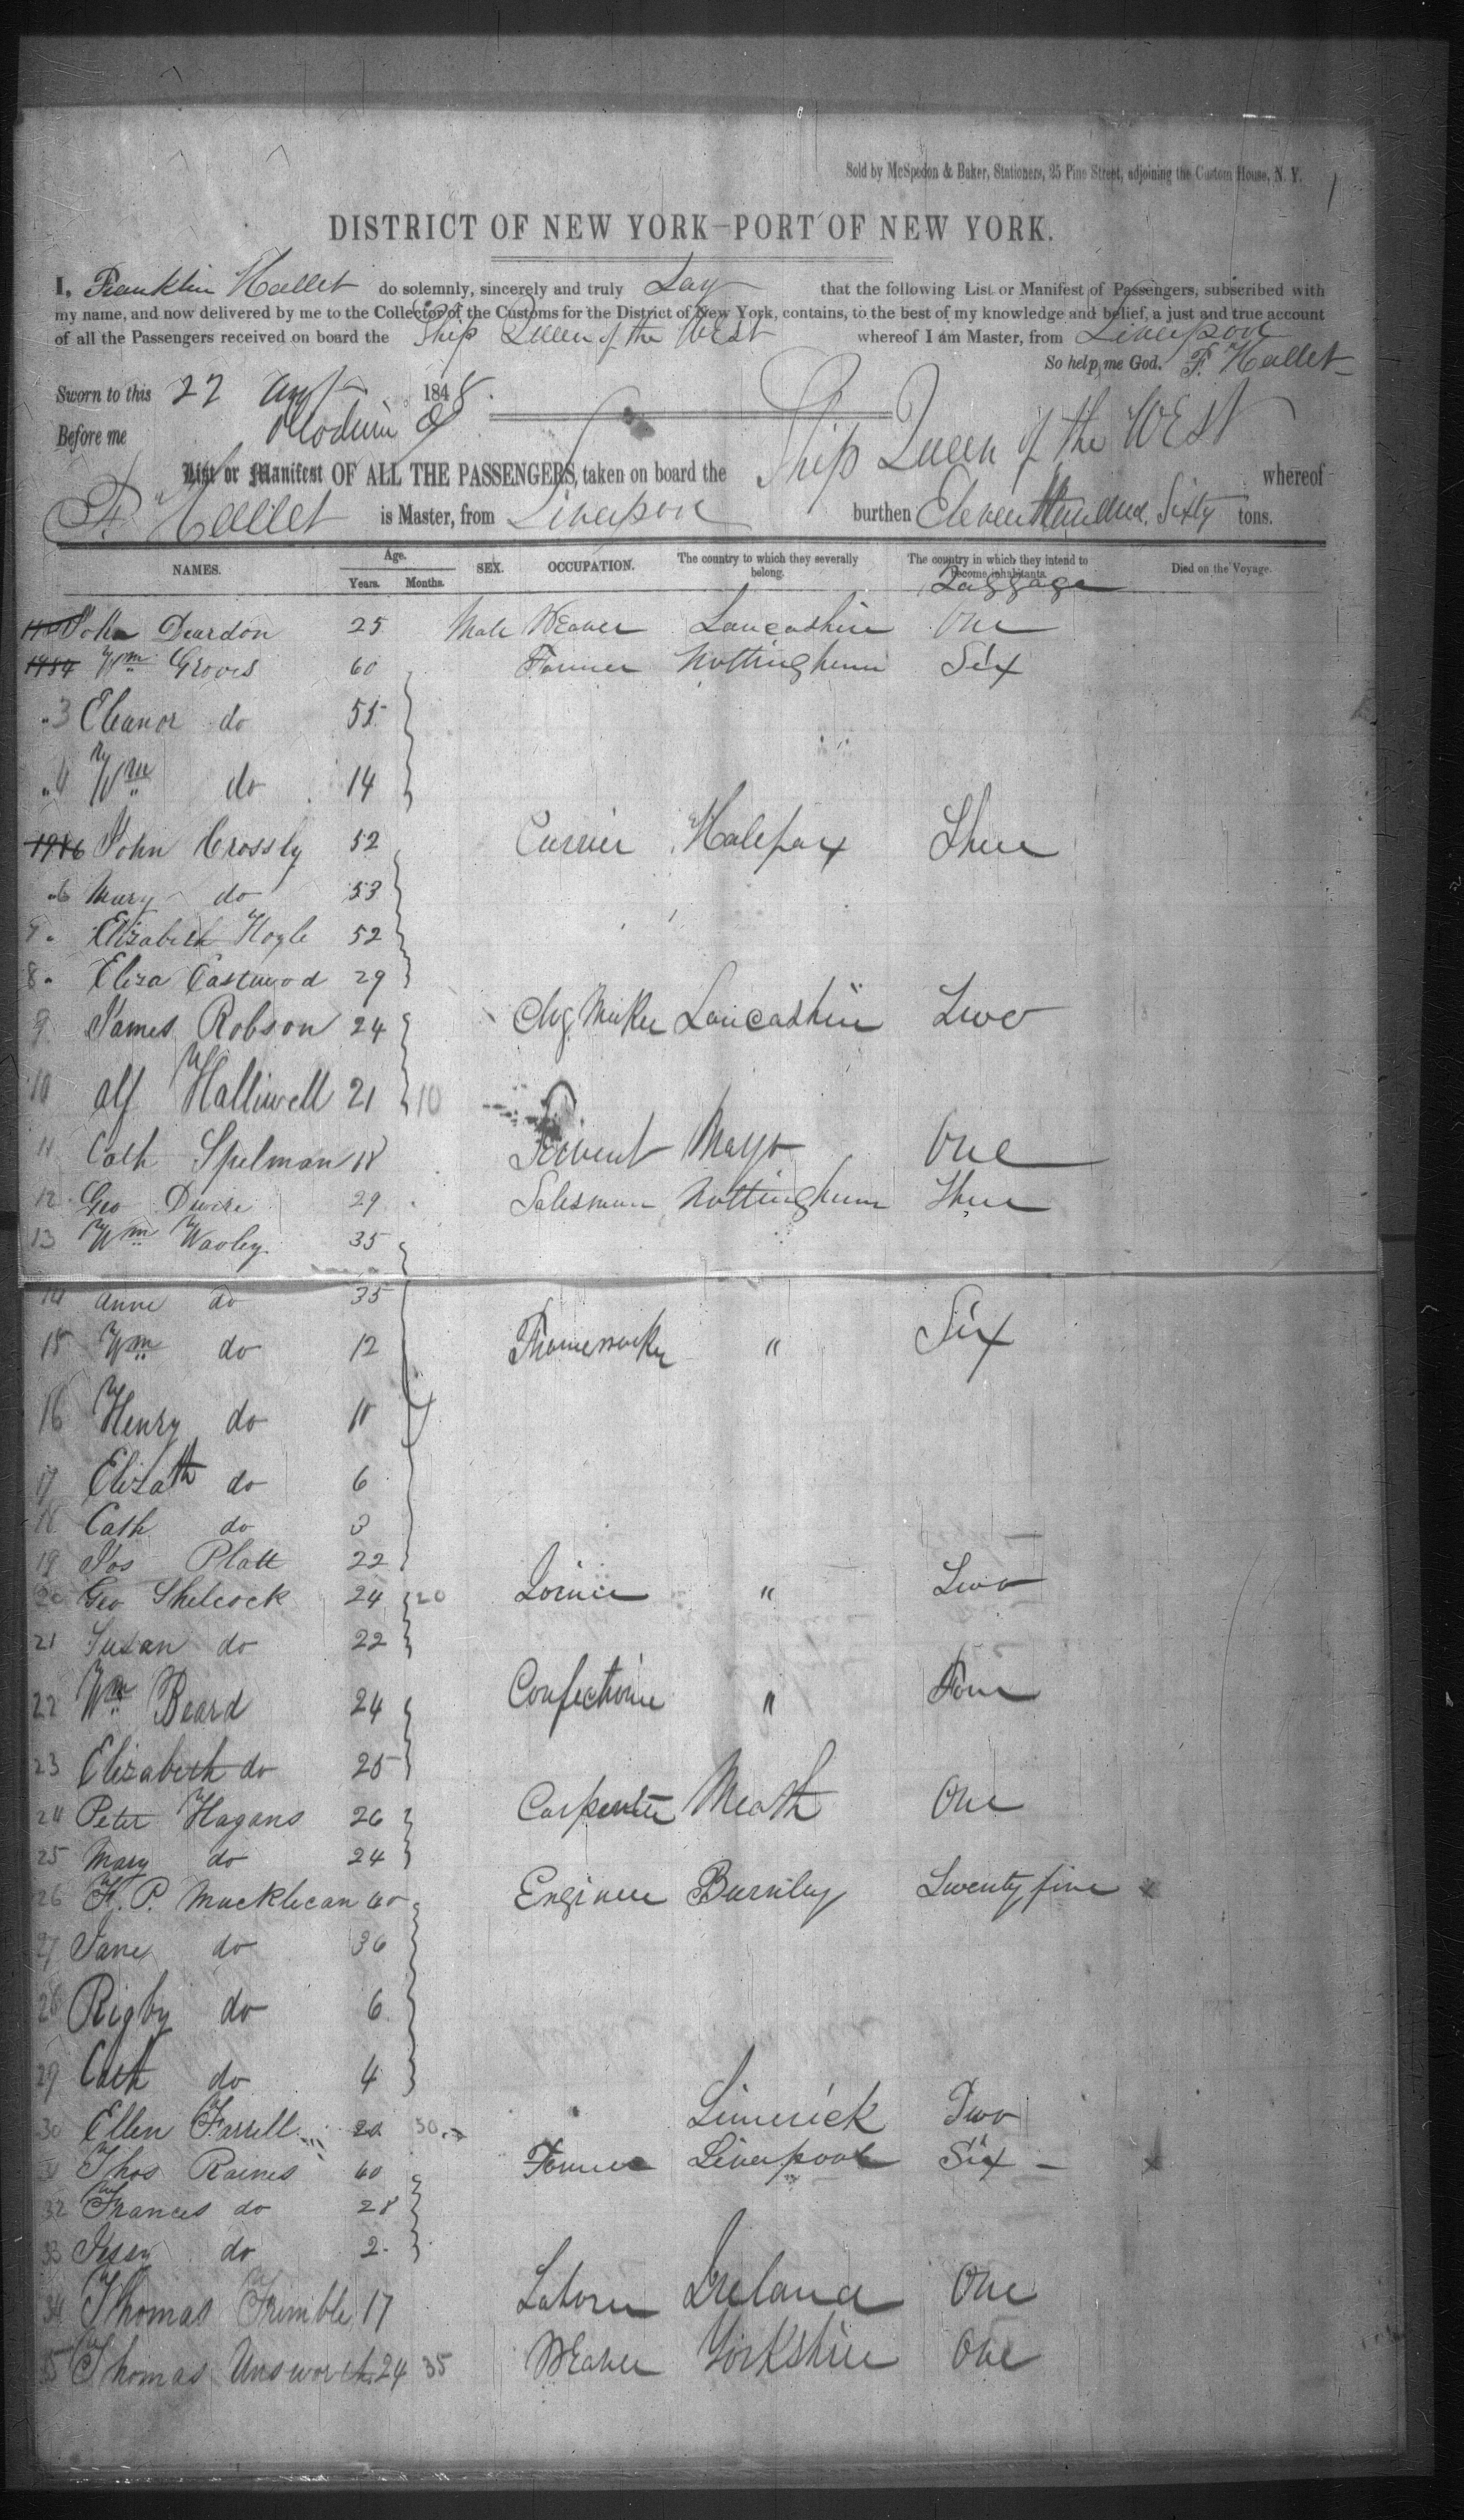 Sold by McSpedon & Baker, Stationers, 25 Pine Street, adjoining the Custom House, N. Y.
DISTRICT OF NEW YORK—PORT OF NEW YORK.
I, Franklin Hallet do solemnly, sincerely and truly Say that the following List or Manifest of Passengers, subscribed with
my name, and now delivered by me to the Collector of the Customs for the District of New York, contains, to the best of my knowledge and belief, a just and true account
of all the Passengers received on board the Ship Queen of the West whereof I am Master, from Liverpool
So help me God. F. Hallet
Sworn to this 22 1848.
Before me
List or Manifest OF ALL THE PASSENGERS, taken on board the Ship Queen of the West whereof
F. Hallet is Master, from Liverpool burthen Eleven Hundred Sixty tons.
NAMES. Age. Years. Months. SEX. OCCUPATION. The country to which they severally belong. The country in which they intend to become inhabitants. Died on the Voyage.
Baggage
John Deardon 25 Male Weaver Lancashire One
Wm Groves 60 Farmer Nottingham Six
3 Eleanor do 55
4 Wm do 14
1986 John Crossly 52 Currier Halefax Three
6 Mary do 53
Elizabeth Hoyle 52
8 Eliza Eastwood 29
9 James Robson 24 Maker Lancashire Two
10 Alf Halliwell 21 10
11 Cath Spelman 18 Servent Mayo One
12 Geo 29 Salesman Nottingham Three
13 Wm Waoley 35
14 Anne do 35
15 Wm do 12 Framemaker " Six
16 Henry do 11
17 Elizath do 6
18 Cath do 3
19 Jos Platt 22
20 Geo Shelcock 24 20 Joiner " Two
21 Susan do 22
22 Wm Beard 24 Confectioner " Four
23 Elizabeth do 25
24 Peter Hagans 26 Carpenter Meath One
25 Mary do 24
26 P. Mucklecan 40 Engineer Burnley Twenty five
27 Jane do 36
28 Rigby do 6
29 Cath do 4
30 Ellen Farrell 20 30 Limerick Two
31 Thos Raines 60 Farmer Liverpool Six
32 Frances do 28
33 Jessy do 2
34 Thomas Trimble 17 Laborer Ireland One
35 Thomas Unsworth 24 35 Weaver Yorkshire One